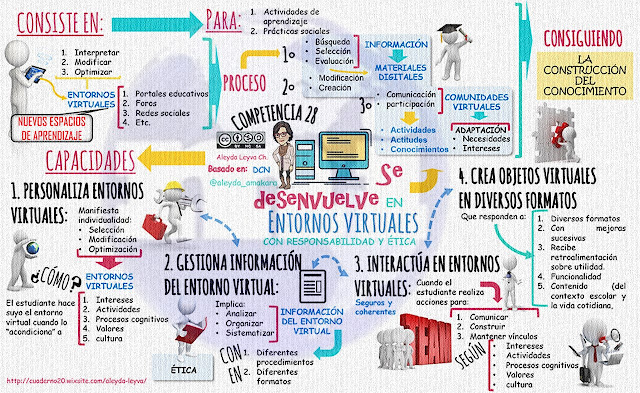 CONSISTE EN:
1. Interpretar
2. Modificar
3. Optimizar
ENTORNOS
VIRTUALES
NUEVOS ESPACIOS
DE APRENDIZAJE
1. Portales educativos
2. Foros
3. Redes sociales
4. Etc.
PARA:
1. Actividades de
aprendizaje
2. Prácticas sociales
PROCESO
1º
Búsqueda
Selección
Evaluación
INFORMACIÓN
2º
Modificación
Creación
MATERIALES
DIGITALES
3º
Comunicación
participación
COMUNIDADES
VIRTUALES
Actividades
Actitudes
Conocimientos
ADAPTACIÓN
Necesidades
Intereses
CONSIGUIENDO
LA
CONSTRUCCIÓN
DEL
CONOCIMIENTO
COMPETENCIA 28
BY NC SA
Aleyda Leyva Ch.
Basado en: DCN
@aleyda_amakara
Se
desenvuelve EN
ENTORNOS VIRTUALES
CON RESPONSABILIDAD Y ÉTICA
CAPACIDADES
1. PERSONALIZA ENTORNOS
VIRTUALES:
Manifiesta
individualidad:
• Selección
• Modificación
• Optimización
¿CÓMO?
ENTORNOS
VIRTUALES
El estudiante hace
suyo el entorno
virtual cuando lo
"acondiciona" a
1. Intereses
2. Actividades
3. Procesos cognitivos
4. Valores
5. cultura
2. GESTIONA INFORMACIÓN
DEL ENTORNO VIRTUAL:
Implica:
• Analizar
• Organizar
• Sistematizar
INFORMACIÓN
DEL ENTORNO
VIRTUAL
ÉTICA
CON
EN
1. Diferentes
procedimientos
2. Diferentes
formatos
3. INTERACTÚA EN ENTORNOS
VIRTUALES:
Seguros y
coherentes
Cuando el
estudiante realiza
acciones para:
1. Comunicar
2. Construir
3. Mantener vínculos
TEAM
SEGÚN
• Intereses
• Actividades
• Procesos cognitivos
• Valores
• cultura
4. CREA OBJETOS VIRTUALES
EN DIVERSOS FORMATOS
Que responden a:
1. Diversos formatos
2. Con mejoras
sucesivas
3. Recibe
retroalimentación
sobre utilidad.
4. Funcionalidad
5. Contenido (del
contexto escolar y
la vida cotidiana.
http://cuaderno20.wixsite.com/aleyda-leyva/